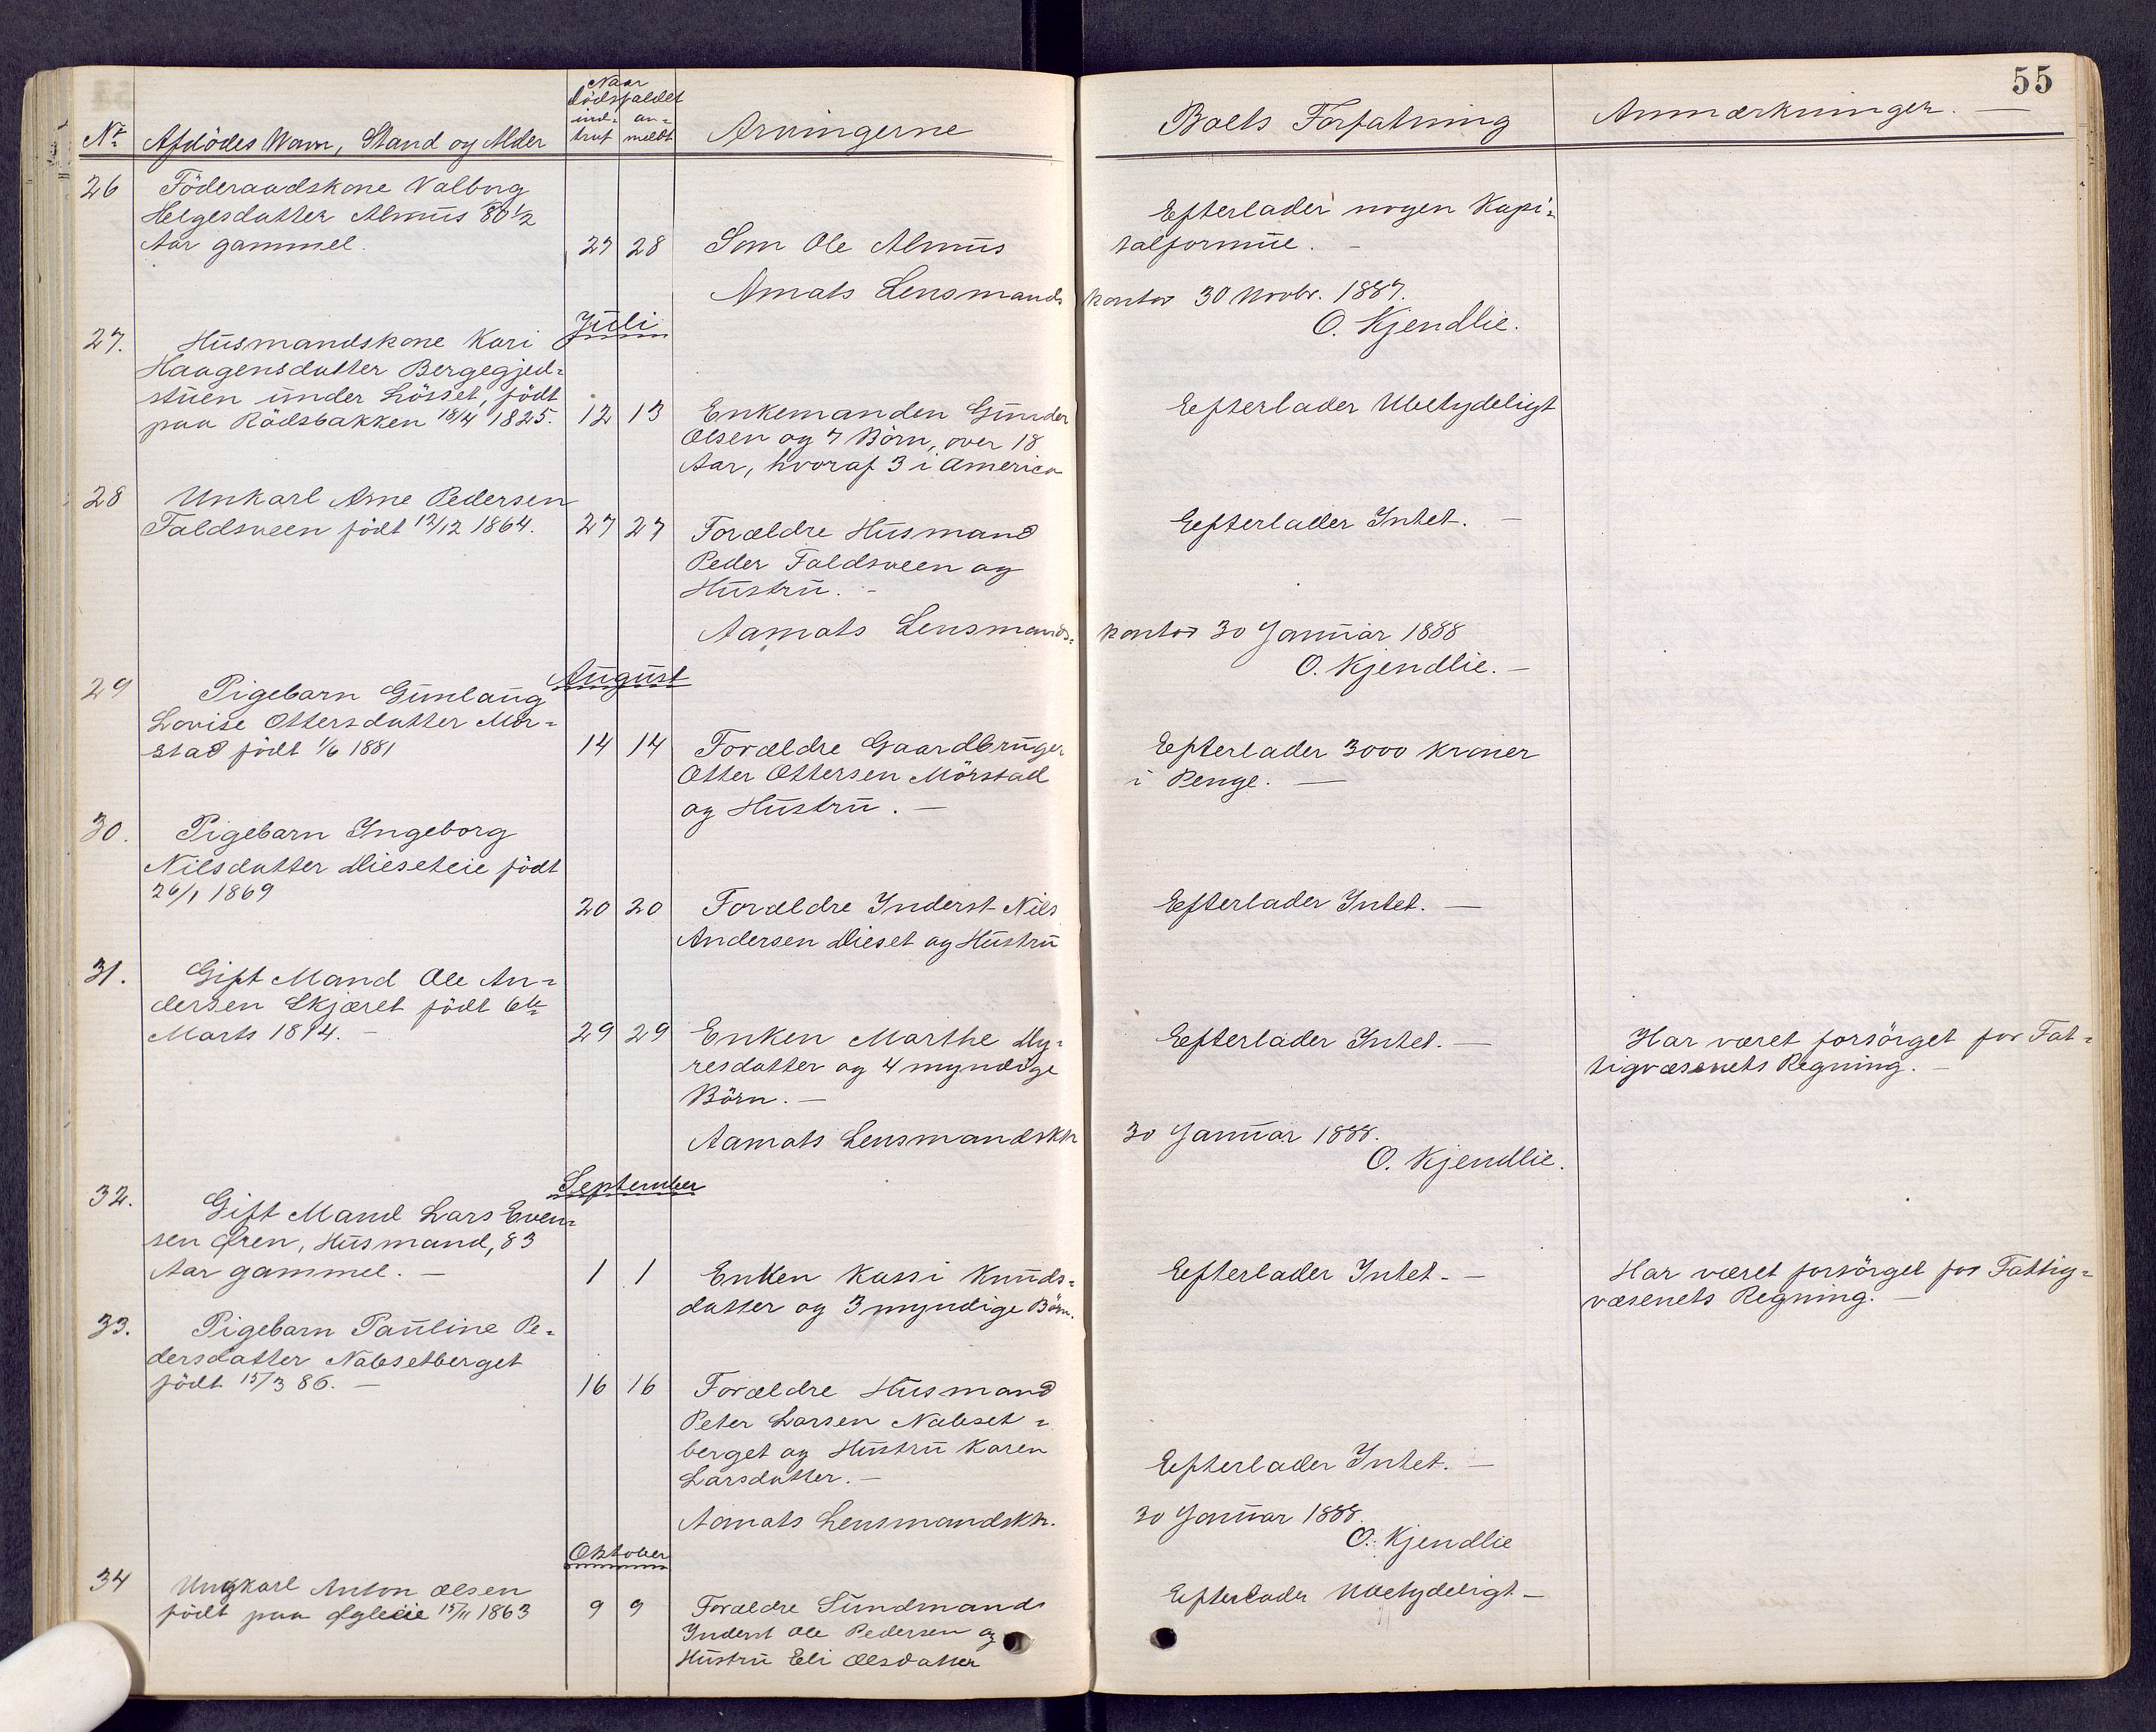 55
Naar
dödsfaldet
Nr. Afdödes Navn, Stand og Alder ind= truf an= meldt Arvingerne Boets Forfatning Anmærkninger. —
26 Föderaadskone Valborg
Helgesdatter Almus 80 1/2
Aar gammel. 27 28 Søn Ole Almus
Efterlader nogen Kapi=
talformue. —
Amots Lensmands kontor 30 Novbr. 1887.
O. Kjendlie.
Juli
27. Husmandskone Kari
Haagensdatter Bergegjed=
stuen under Lösset, födt
paa Rödsbakken 18/4 1825. 12 13 Enkemanden Gunder
Olsen og 7 Börn, over 18
Aar, hvoraf 3 i America
Efterlader Ubetydeligt
28 Unkarl Arne Pedersen
Faldsveen födt 12/12 1864. 27 27 Forældre Husmand
Peder Faldsveen og
Hustru. —
Efterlader Intet. —
Aamots Lensmands= kontor 30 Januar 1888
O. Kjendlie. —
August
29 Pigebarn Gunlaug
Lovise Ottersdatter Mör=
stad födt 1/6 1881 14 14 Forældre Gaardbruger
Otter Ottersen Mörstad
og Hustru. —
Efterlader 3000 Kroner
i Penge. —
30. Pigebarn Ingeborg
Nilsdatter Dieseteie födt
26/1 1869 20 20 Forældre Inderst Nils
Andersen Dieset og Hustru
Efterlader Intet. —
31. Gift Mand Ole An=
dersen Skjæret födt 6te
Marts 1814. — 29 29 Enken Marthe My=
resdatter og 4 myndige
Börn. —
Efterlader Intet. —
Har været forsörget for Fat=
tigvæsenets Regning. —
Aamots Lensmandskr 30 Januar 1888.
O. Kjendlie.
September
32. Gift Mand Lars Even=
sen Øren, Husmand, 83
Aar gammel. — 1 1 Enken Kassi Knuds=
datter og 3 myndige Börn.
Efterlader Intet. —
Har været forsörget for Fattig=
væsenets Regning. —
33. Pigebarn Pauline Pe=
dersdatter Nabsetberget
födt 15/3 86. — 16 16 Forældre Husmand
Peter Larsen Nabset=
berget og Hustru Karen
Larsdatter. —
Efterlader Intet. —
Aamots Lensmandskr. 30 Januar 1888.
O. Kjendlie
Oktober
34 Ungkarl Anton Olsen
födt paa Øgleeie 15/11 1863 9 9 Forældre Sundmands
Inderst Ole Pedersen og
Hustru Eli Olsdatter
Efterlader Ubetydeligt —